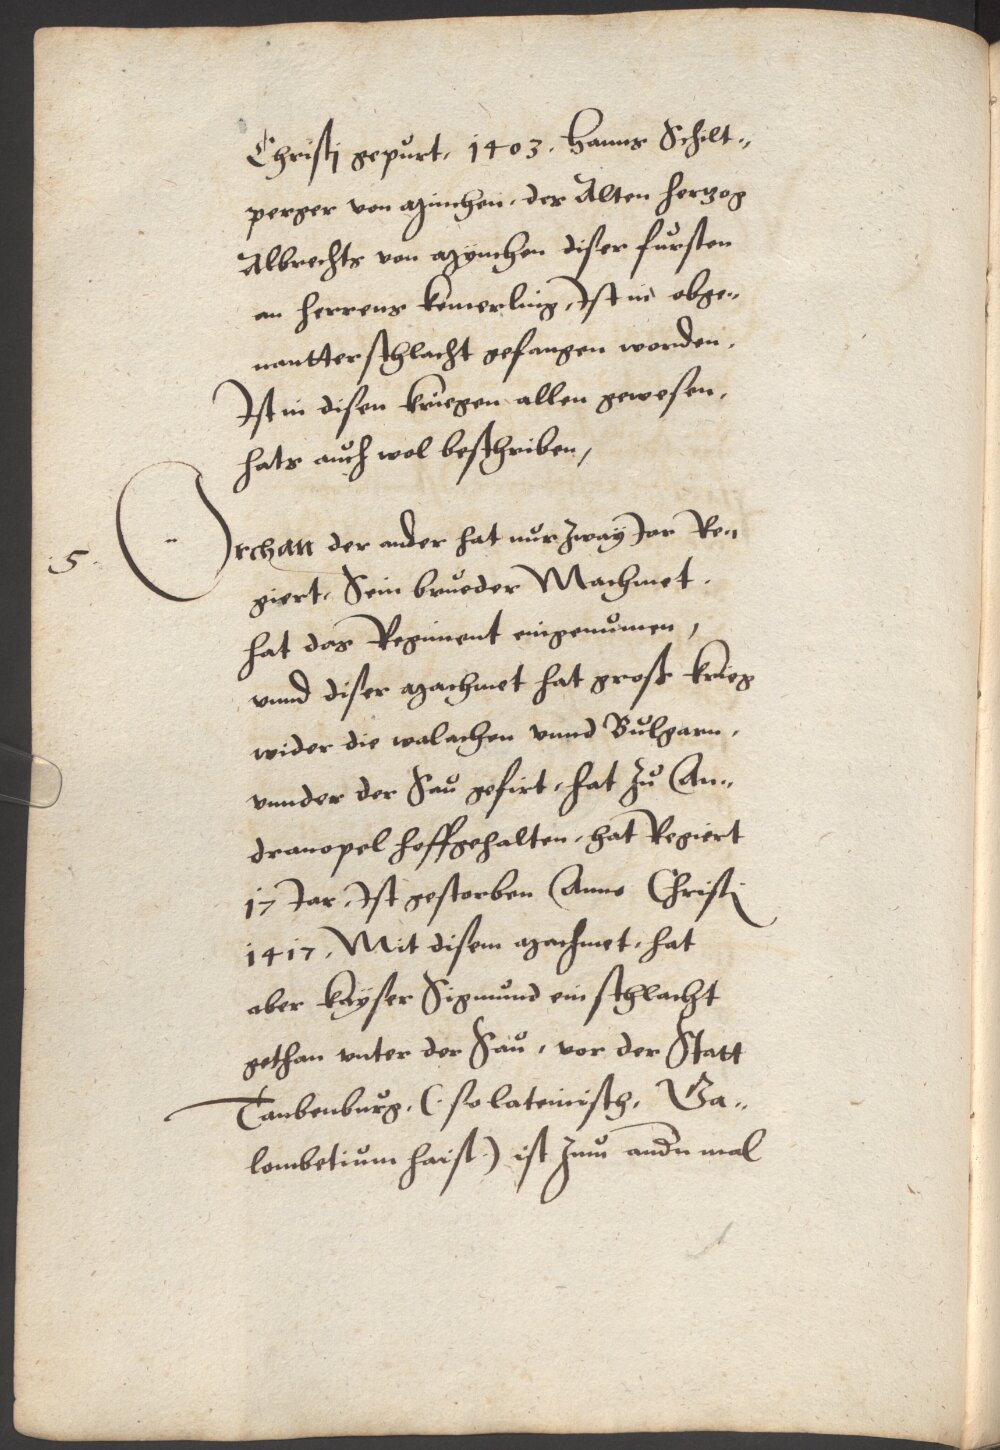 Christj gepůrt, 1403. Hanns Schilt„
perger von München, der Alten Hertzog
Albrechts von Mÿnchen diser fürsten
an Herrens kemerling, Ist in obge„
nantter schlacht gefangen worden,
Ist in disen kriegen allen gewesen,
hats auch wol beschriben,
5. Orchan der ander hat nur zway Jar Re„
giert, Sein brůeder Machmet
hat das Regiment eingenůmen,
vnnd diser Machmet hat groß krieg
wider die walachen vnnd Bůlgarn,
vnnder der Saů gefirt, hat zů An„
dranopel hoffgehalten, hat Regiert
17 Jar, Ist gestorben Anno Christj
1417, Mit disem Machmet, hat
aber kayser Sigmůnd ein schlacht
gethan vnter der Saů, vor der Statt
Taubenbůrg, (so lateinisch, Ga„
lombetium haist) ist zům andn mal